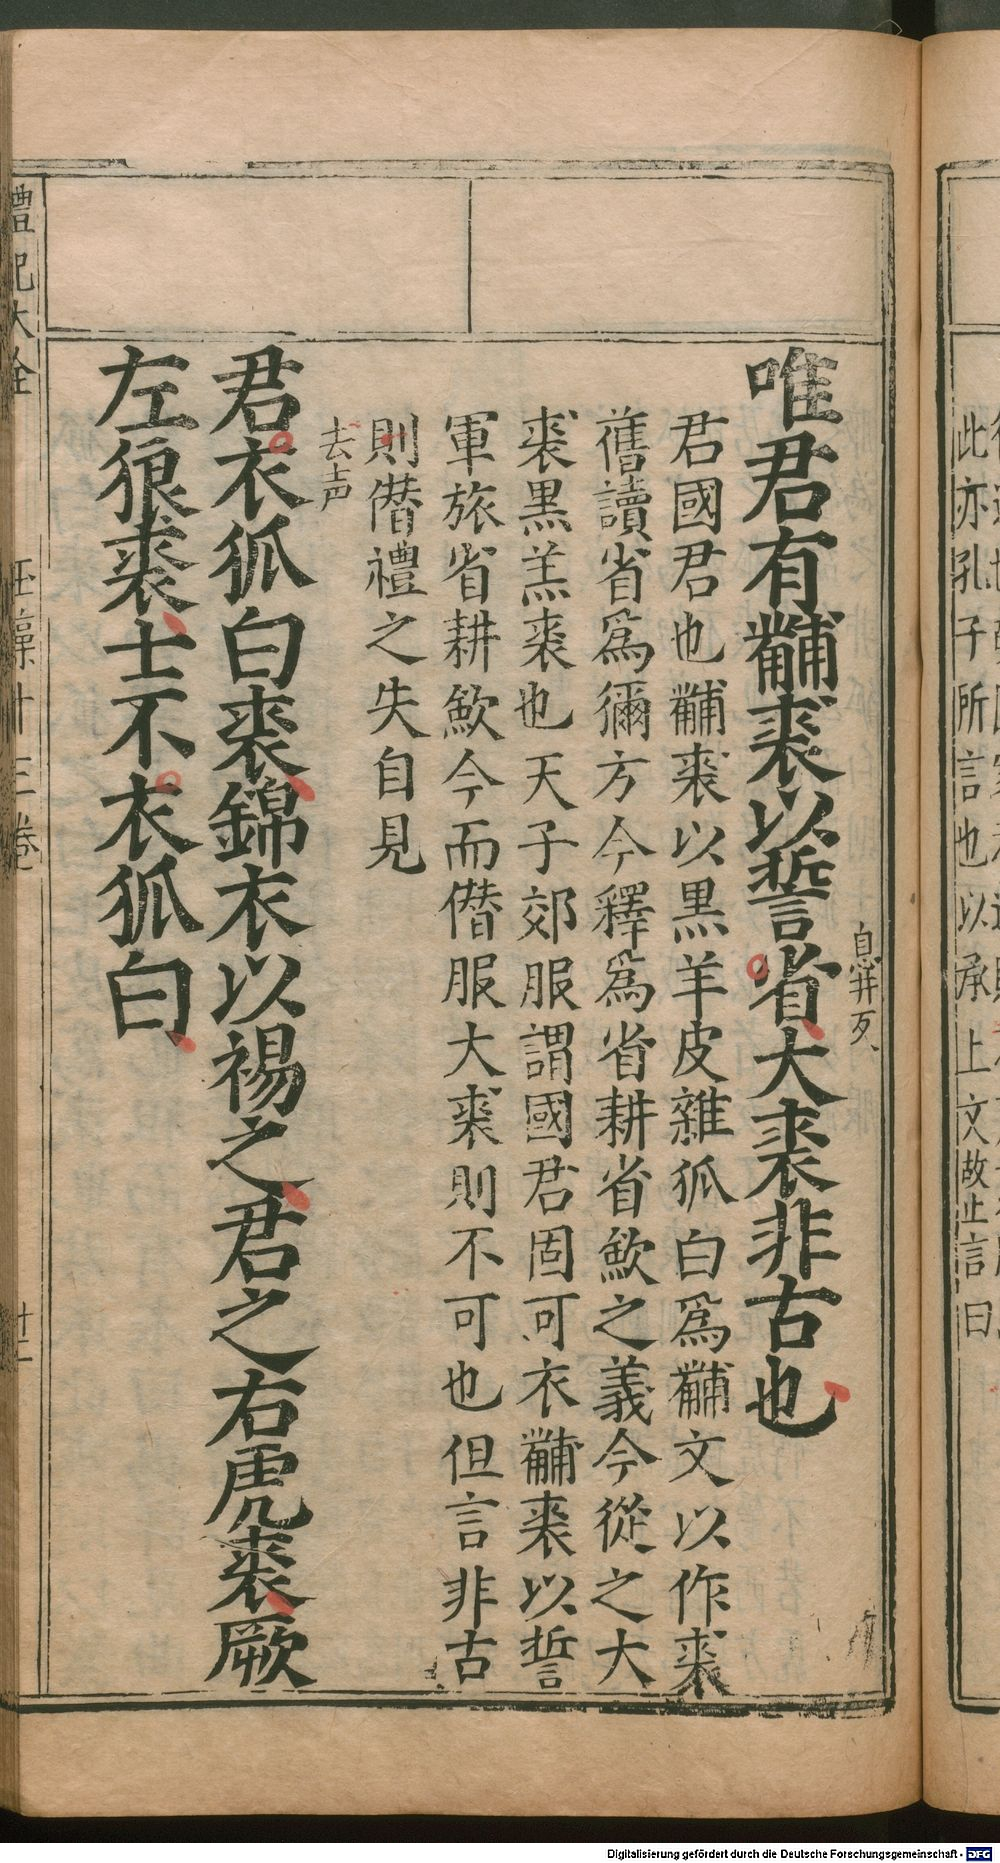 此亦孔子所言也以承上文故止言曰
唯君有黼裘以誓省大裘非古也
息井反
君國君也黼裘以黑羊皮雜狐白爲黼文以作裘
舊讀省爲彌方今釋爲省耕省斂之義今從之大
裘黑羔裘也天子郊服謂國君固可衣黼裘以誓
軍旅省耕斂今而僭服大裘則不可也但言非古
則僭禮之失自見
去声
君衣狐白裘錦衣以裼之君之右虎裘厥
左狼裘士不衣狐白
禮記大全
玉藻十三卷
Digitalisierung gefördert durch die Deutsche Forschungsgemeinschaft - DFG